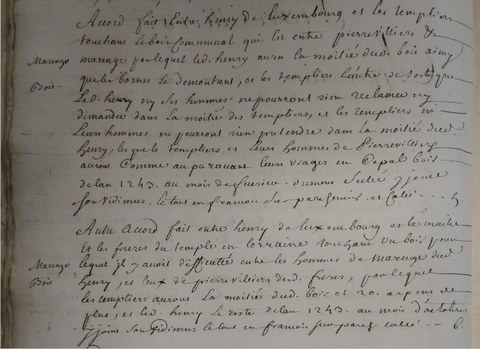 Accord fait Entre henry de luxembourg et les templiers
touchans le bois Communal qui est entre pierrevilliers &
marenge par lequel led. henry aura la moitié dud. bois ainsy
Marenge
Bois.
que les bornes Le demontrent, et les templiers L'autre de sorte que
Led. henry ny ses hommes ne pourront rien reclamer ny
demander dans La moitié des templiers, et les templiers ni
Leurs hommes, ne pouront rien pretendre dans la moitié dud.
henry, les quels templiers et Leurs hommes de Pierrevilliers
auront Comme auparavant leurs usages en bois
de lan 1243. au mois de Sulié y joint
son vidimus. le tout en francois sur parchemin et Cotté ... 5.
Autre accord fait entre henry de luxembourg et le maitre
Et les freres du temple en lorraine touchant un bois pour
Marenge
Bois
lequel il y avoit difficulté entre les hommes de marenge dud.
henry, et Ceux de pierrevilliers desd. freres, par lequel
les templiers auront La moitié dud. bois et 20. arpens de
plus, et led. henry Le reste de lan 1243. au mois d'octobre
y joint son vidimus le tout en francois sur parch. cotté ... 6.